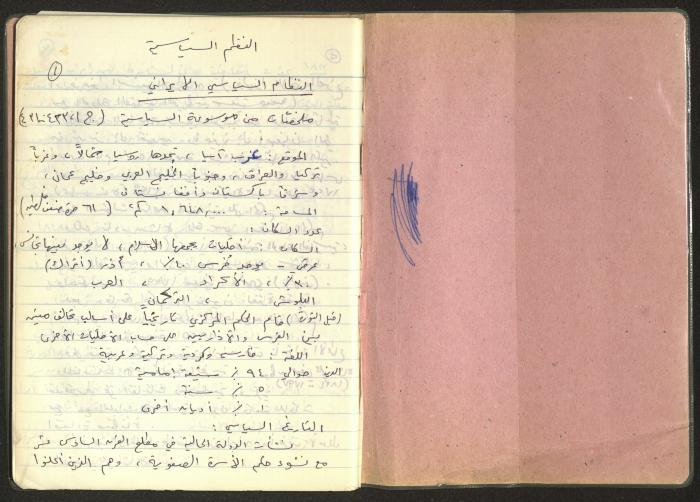 النظم السياسية
(١)
النظام السياسي الايراني
ملخصات من موسوعة السياسة. (ج١،
الموقع: غرب آسيا، تحدها روسيا شمالاً، وغرباً
تركيا والعراق، وجنوباً الخليج العربي وخليج عمان،
وشرقاً باكستان وأفغانستان
المساحة: كم٢ (٦١ مرة
عدد السكان:
السكان: أقليات يجمعها الاسلام، لا يوجد بينها تجانس
عرقي - يوجد فُرس ٪، آذر (أتراك)
٪، الأكراد، العرب
البلوش، التركمان.
(قبل الثورة) قام الحكم المركزي تاريخياً على أساس تحالف
بين الفرس والآذاريين على حساب الأقليات الأخرى
اللغة: فارسية وكردية وتركية وعربية
الدين حوالي ٩٤٪ شيعة إمامية
٥٪ سنة
١٪ أديان أخرى
التاريخ السياسي:
نشأت الدولة الحالية في مطلع القرن السادس عشر
مع نشوء حكم الأسرة الصفوية، وهم الذين أعلنوا